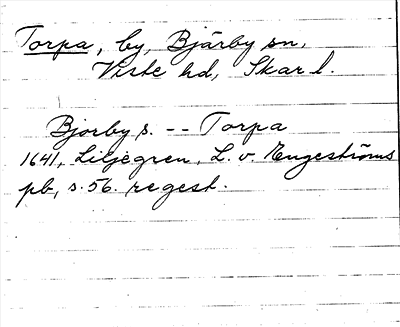 Torpa, by, Bjärby sn,
Viste hd, Skar l.
Bjorby s. -- Torpa
1641, Liljegren, L. v. Engeströms
pb, s. 56. regest.